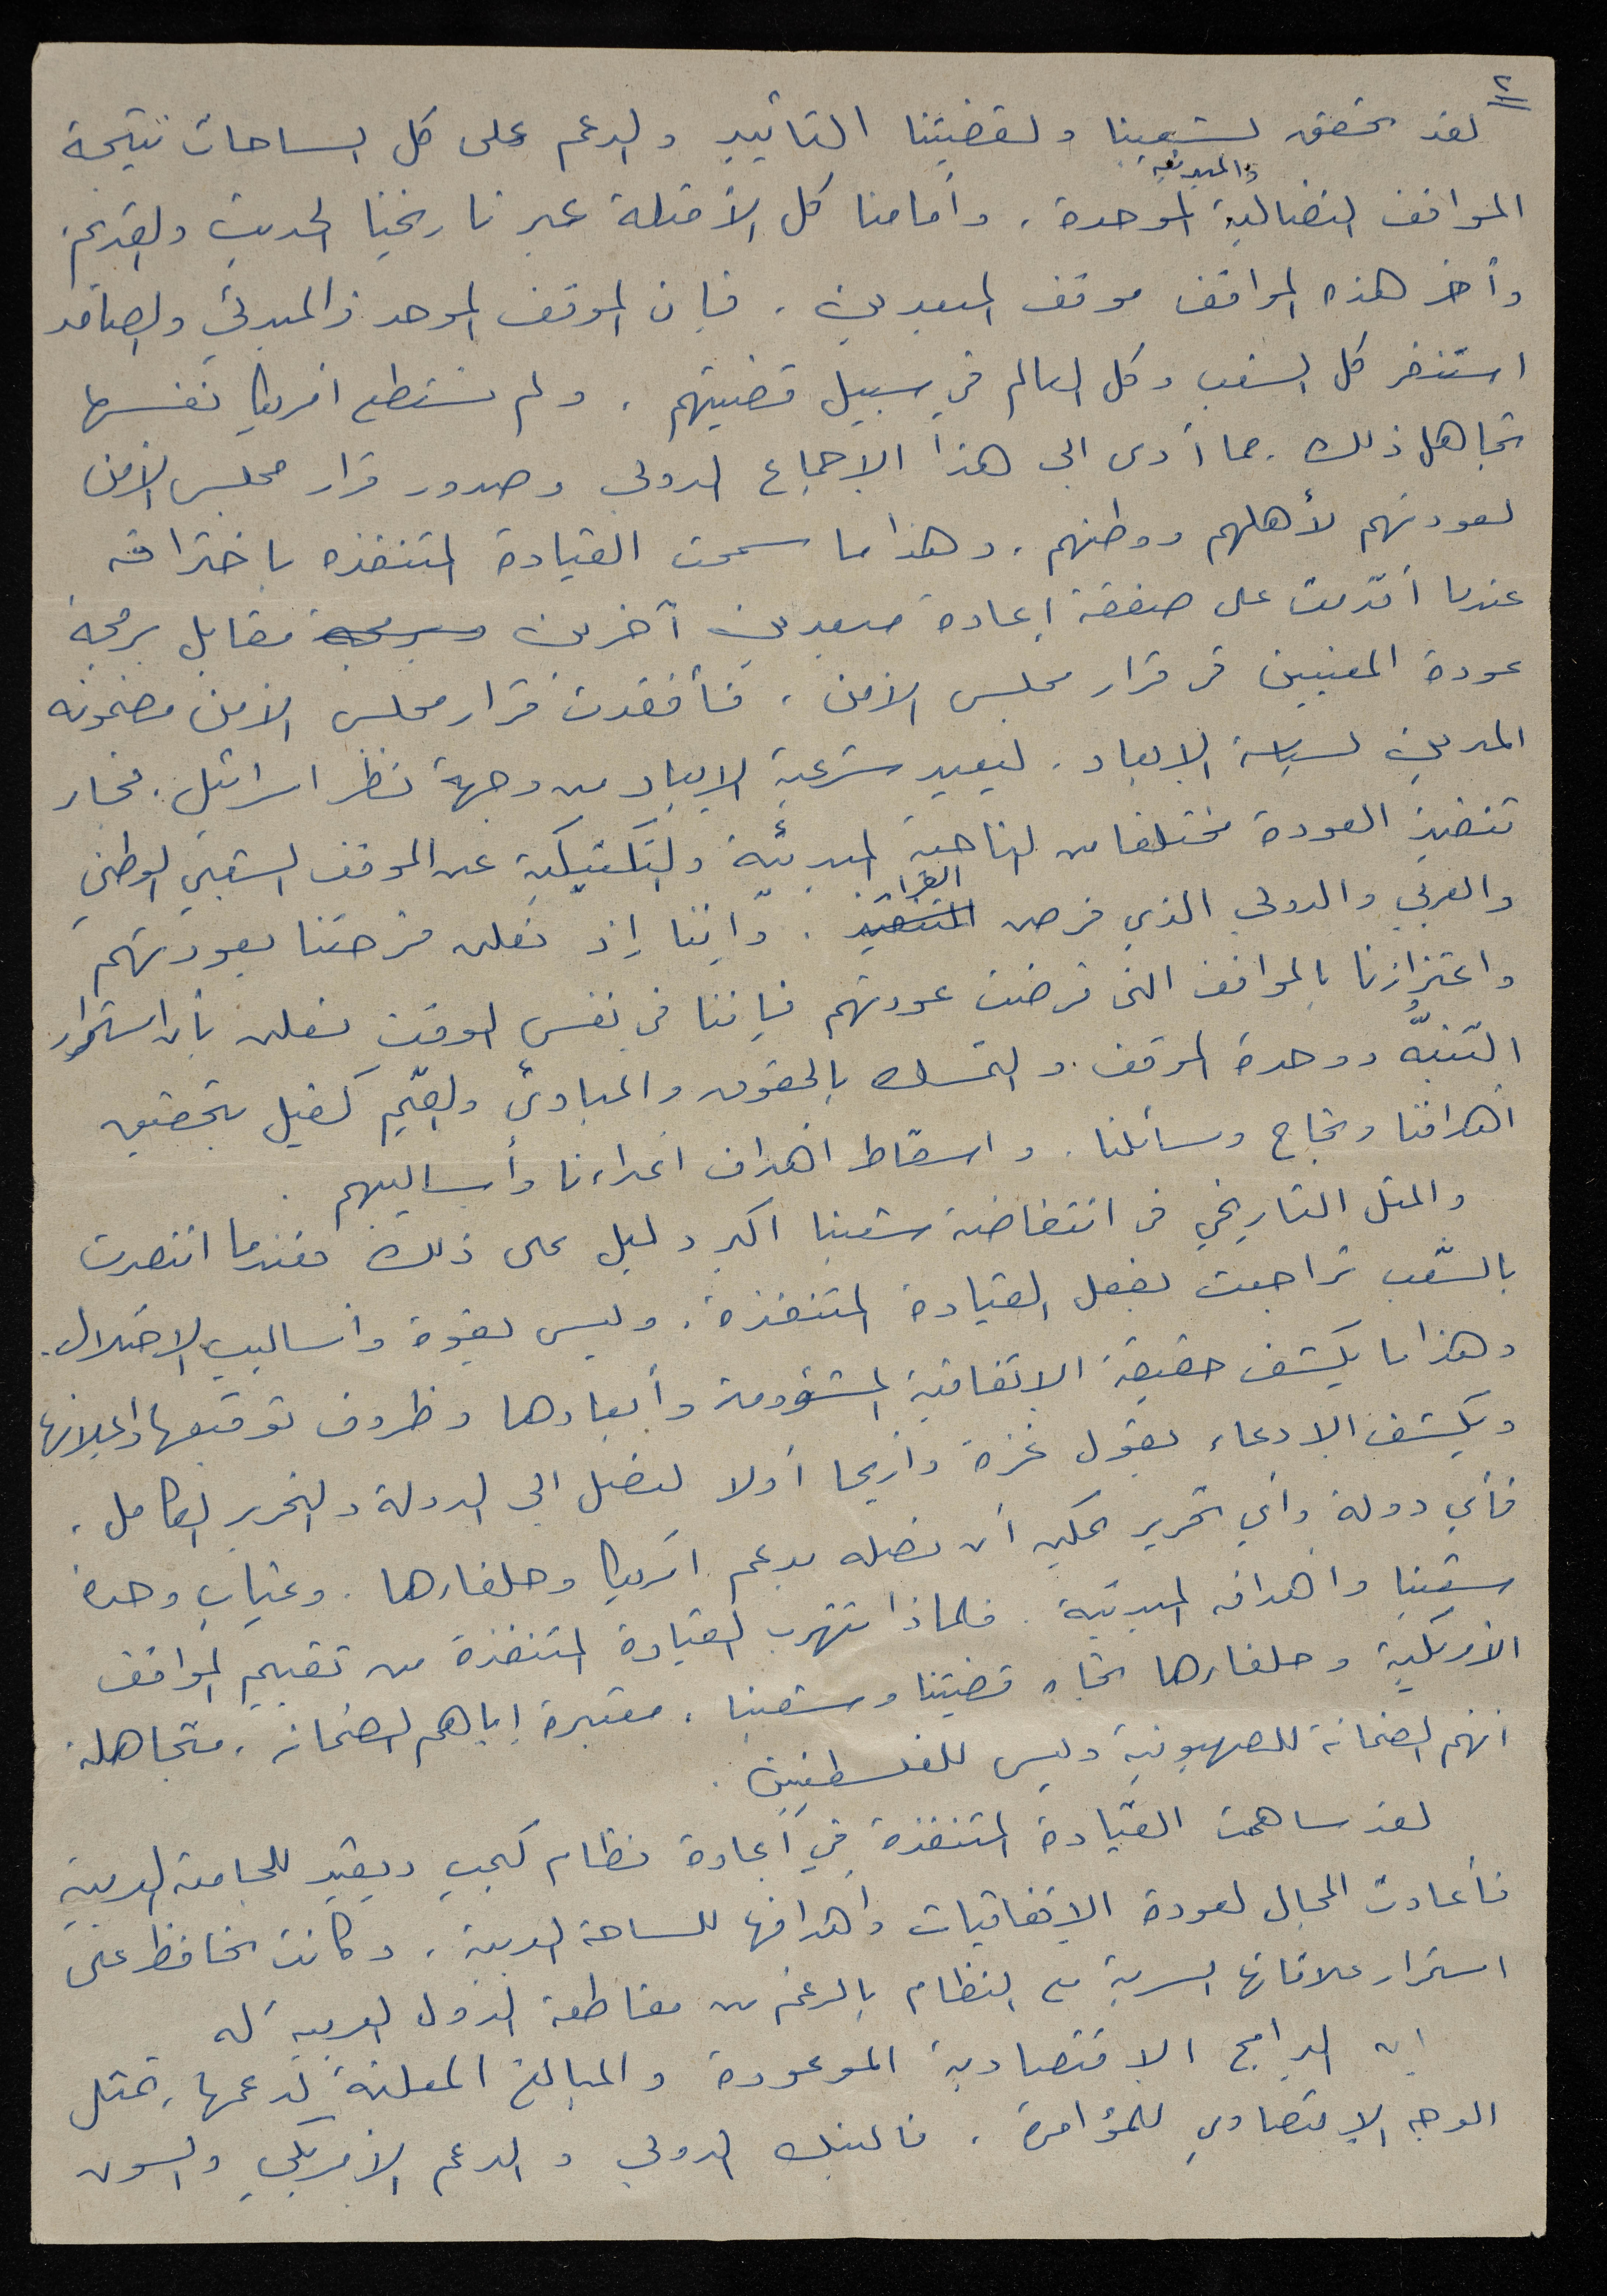 ٢
لقد تحقق لشعبنا ولقضيتنا التأييد والدعم على كل الساحات نتيجة
والمبدئية
المواقف النضالية الموحدة، وأمامنا كل الأمثلة عبر تاريخنا الحديث والقديم.
وآخر هذه المواقف موقف المبعدين. فإن الموقف الموحد والمبدئي والصامد
استنفر كل الشعب وكل العالم في سبيل قضيتهم. ولم تستطع امريكا نفسها
تجاهل ذلك. مما أدى الى هذا الاجماع الدولي وصدور قرار مجلس الأمن
لعودتهم لأهلهم ووطنهم. وهذا ما سمحت القيادة المتنفذه باختراقه
عندما أقدمت على صفقة إعادة مبعدين آخرين مقابل برمجة
عودة المعنيين في قرار مجلس الأمن، فأفقدت قرار مجلس الأمن مضمونه
المدين لسياسة الإبعاد. ليعيد شرعية الإبعاد من وجهة نظر اسرائيل. فجاء
تنفيذ العودة مختلفا من الناحية المبدئية والتكتيكية عن الموقف الشعبي الوطني
القرار
والعربي والدولي الذي فرض التنفيذ. وإننا إذ نعلن فرحتنا بعودتهم
واعتزازنا بالمواقف التي فرضت عودتهم فإننا في نفس الوقت نعلن بأن استمرار
التنبّه ووحدة الموقف. والتمسك بالحقوق والمبادئ والقيم كفيل بتحقيق
أهدافنا ونجاح وسائلنا. واسقاط أهداف أعداءنا وأساليبهم.
والمثل التاريخي في انتفاضة شعبنا اكبر دليل على ذلك فعندما انتصرت
بالشعب تراجعت بفعل القيادة المتنفذة. وليس بقوة وأساليب الاحتلال.
وهذا ما يكشف حقيقة الاتفاقية المشؤومة وأبعادها وظروف توقيعها وإعلانها
ويكشف الادعاء بقول غزة وأريحا أولا لنصل الى الدولة والتحرير الكامل.
فأي دولة وأي تحرير يمكن أن نصله بدعم امريكا وحلفاءها. وغياب وحدة
شعبنا وأهدافه المبدئية. فلماذا تتهرب القيادة المتنفذة من تقييم المواقف
الأمريكية وحلفاءها تجاه قضيتنا وشعبنا. معتبرة إياهم الضمانة. متجاهلة
أنهم الضمانة للصهيونية وليس للفلسطينيين.
لقد ساهمت القيادة المتنفذة في إعادة نظام كمب ديفيد للجامعة العربية
فأعادت المجال لعودة الاتفاقيات وأهدافها للساحة العربية. وكانت تحافظ على
استمرار علاقاتها السرية مع النظام بالرغم من مقاطعة الدول العربية له
إن البرامج الاقتصادية الموعودة والمبالغ المعلنة لدعمها، تمثل
الوجه الاقتصادي للمؤامرة. فالبنك الدولي والدعم الأمريكي والسوق